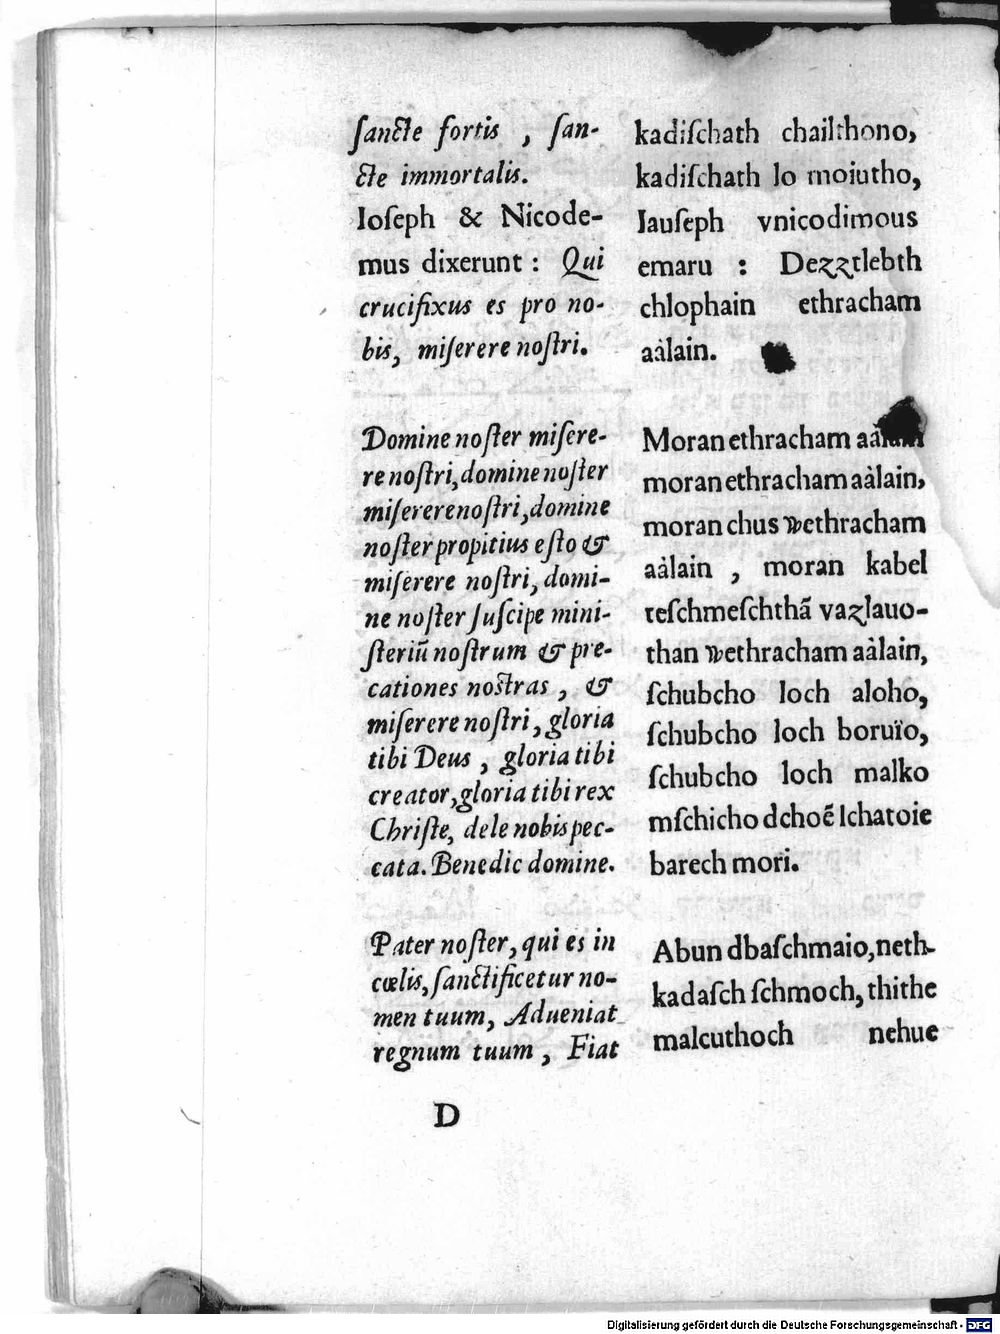 ſancte fortis , ſan-
cte immortalis.
Ioſeph & Nicode-
mus dixerunt : Qui
crucifixus es pro no-
bis, miſerere noſtri.
Domine noſter miſere-
re noſtri, domine noſter
miſerere noſtri, domine
noſter propitius eſto &
miſerere noſtri, domi-
ne noſter ſuſcipe mini-
ſteriũ noſtrum & pre-
cationes nostras , &
miſerere noſtri, gloria
tibi Deus , gloria tibi
creator, gloria tibi rex
Chriſte, dele nobis pec-
cata. Benedic domine.
Pater noſter, qui es in
cœlis, ſanctificetur no-
men tuum, Adueniat
regnum tuum , Fiat
D
kadiſchath chailthono,
kadiſchath lo moiutho,
Iauſeph vnicodimous
emaru : Dezztlebth
chlophain ethracham
aàlain.
Moran ethracham aàlain
moran ethracham aàlain,
moran chus wethracham
aàlain , moran kabel
teſchmeſchthã vazlauo-
than wethracham aàlain,
ſchubcho loch aloho,
ſchubcho loch boruïo,
ſchubcho loch malko
mſchicho dchoẽ lchatoie
barech mori.
Abun dbaſchmaio, neth-
kadaſch ſchmoch, thithe
malcuthoch nehue
Digitalisierung gefördert durch die Deutsche Forschungsgemeinschaft - DFG